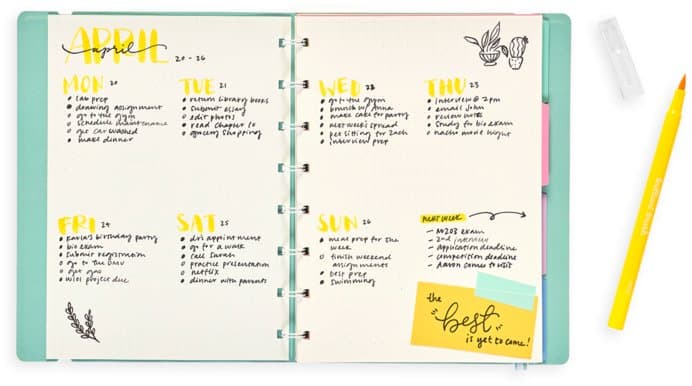 APRIL
april
20 - 26
MON 20
lab prep
drawing assignment
go to the gym
schedule maintenance
get car washed
make dinner
TUE 21
return library books
submit essay
edit photos
read chapter 10
grocery shopping
WED 22
go to the gym
brunch w/ Anna
make cake for party
next week's spread
pet sitting for Zach
interview prep
THU 23
interview @ 2pm
email John
review notes
study for bio exam
nacho movie night
FRI 24
Karla's birthday party
bio exam
submit registration
go to the DMV
get gas
project due
SAT 25
dr's appointment
go for a walk
call Sarah
practice presentation
netflix
dinner with parents
SUN 26
meal prep for the
week
finish weekend
assignments
test prep
swimming
NEXT WEEK
exam
2nd interview
application deadline
competition deadline
Aaron comes to visit
the
"best"
is yet to come!